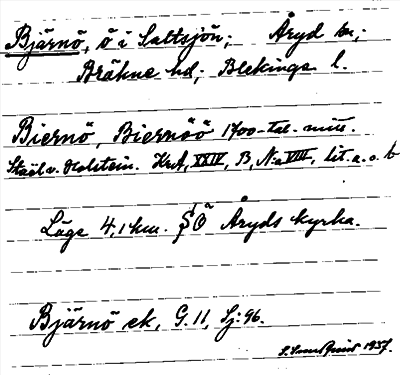 Bjärnö, ö i Saltsjön; Åryd sn;
Bräkne hd; Blekinge l.
Biernö, Biernöö 1700-tal. mitt.
Staël v. Holstein. KrA, XXIV, B, N:o VIII, lit. a. o. b
Läge 4,1 km. SÖ Åryds kyrka.
Bjärnö ek, G. 11, Sj: 96.
1937.